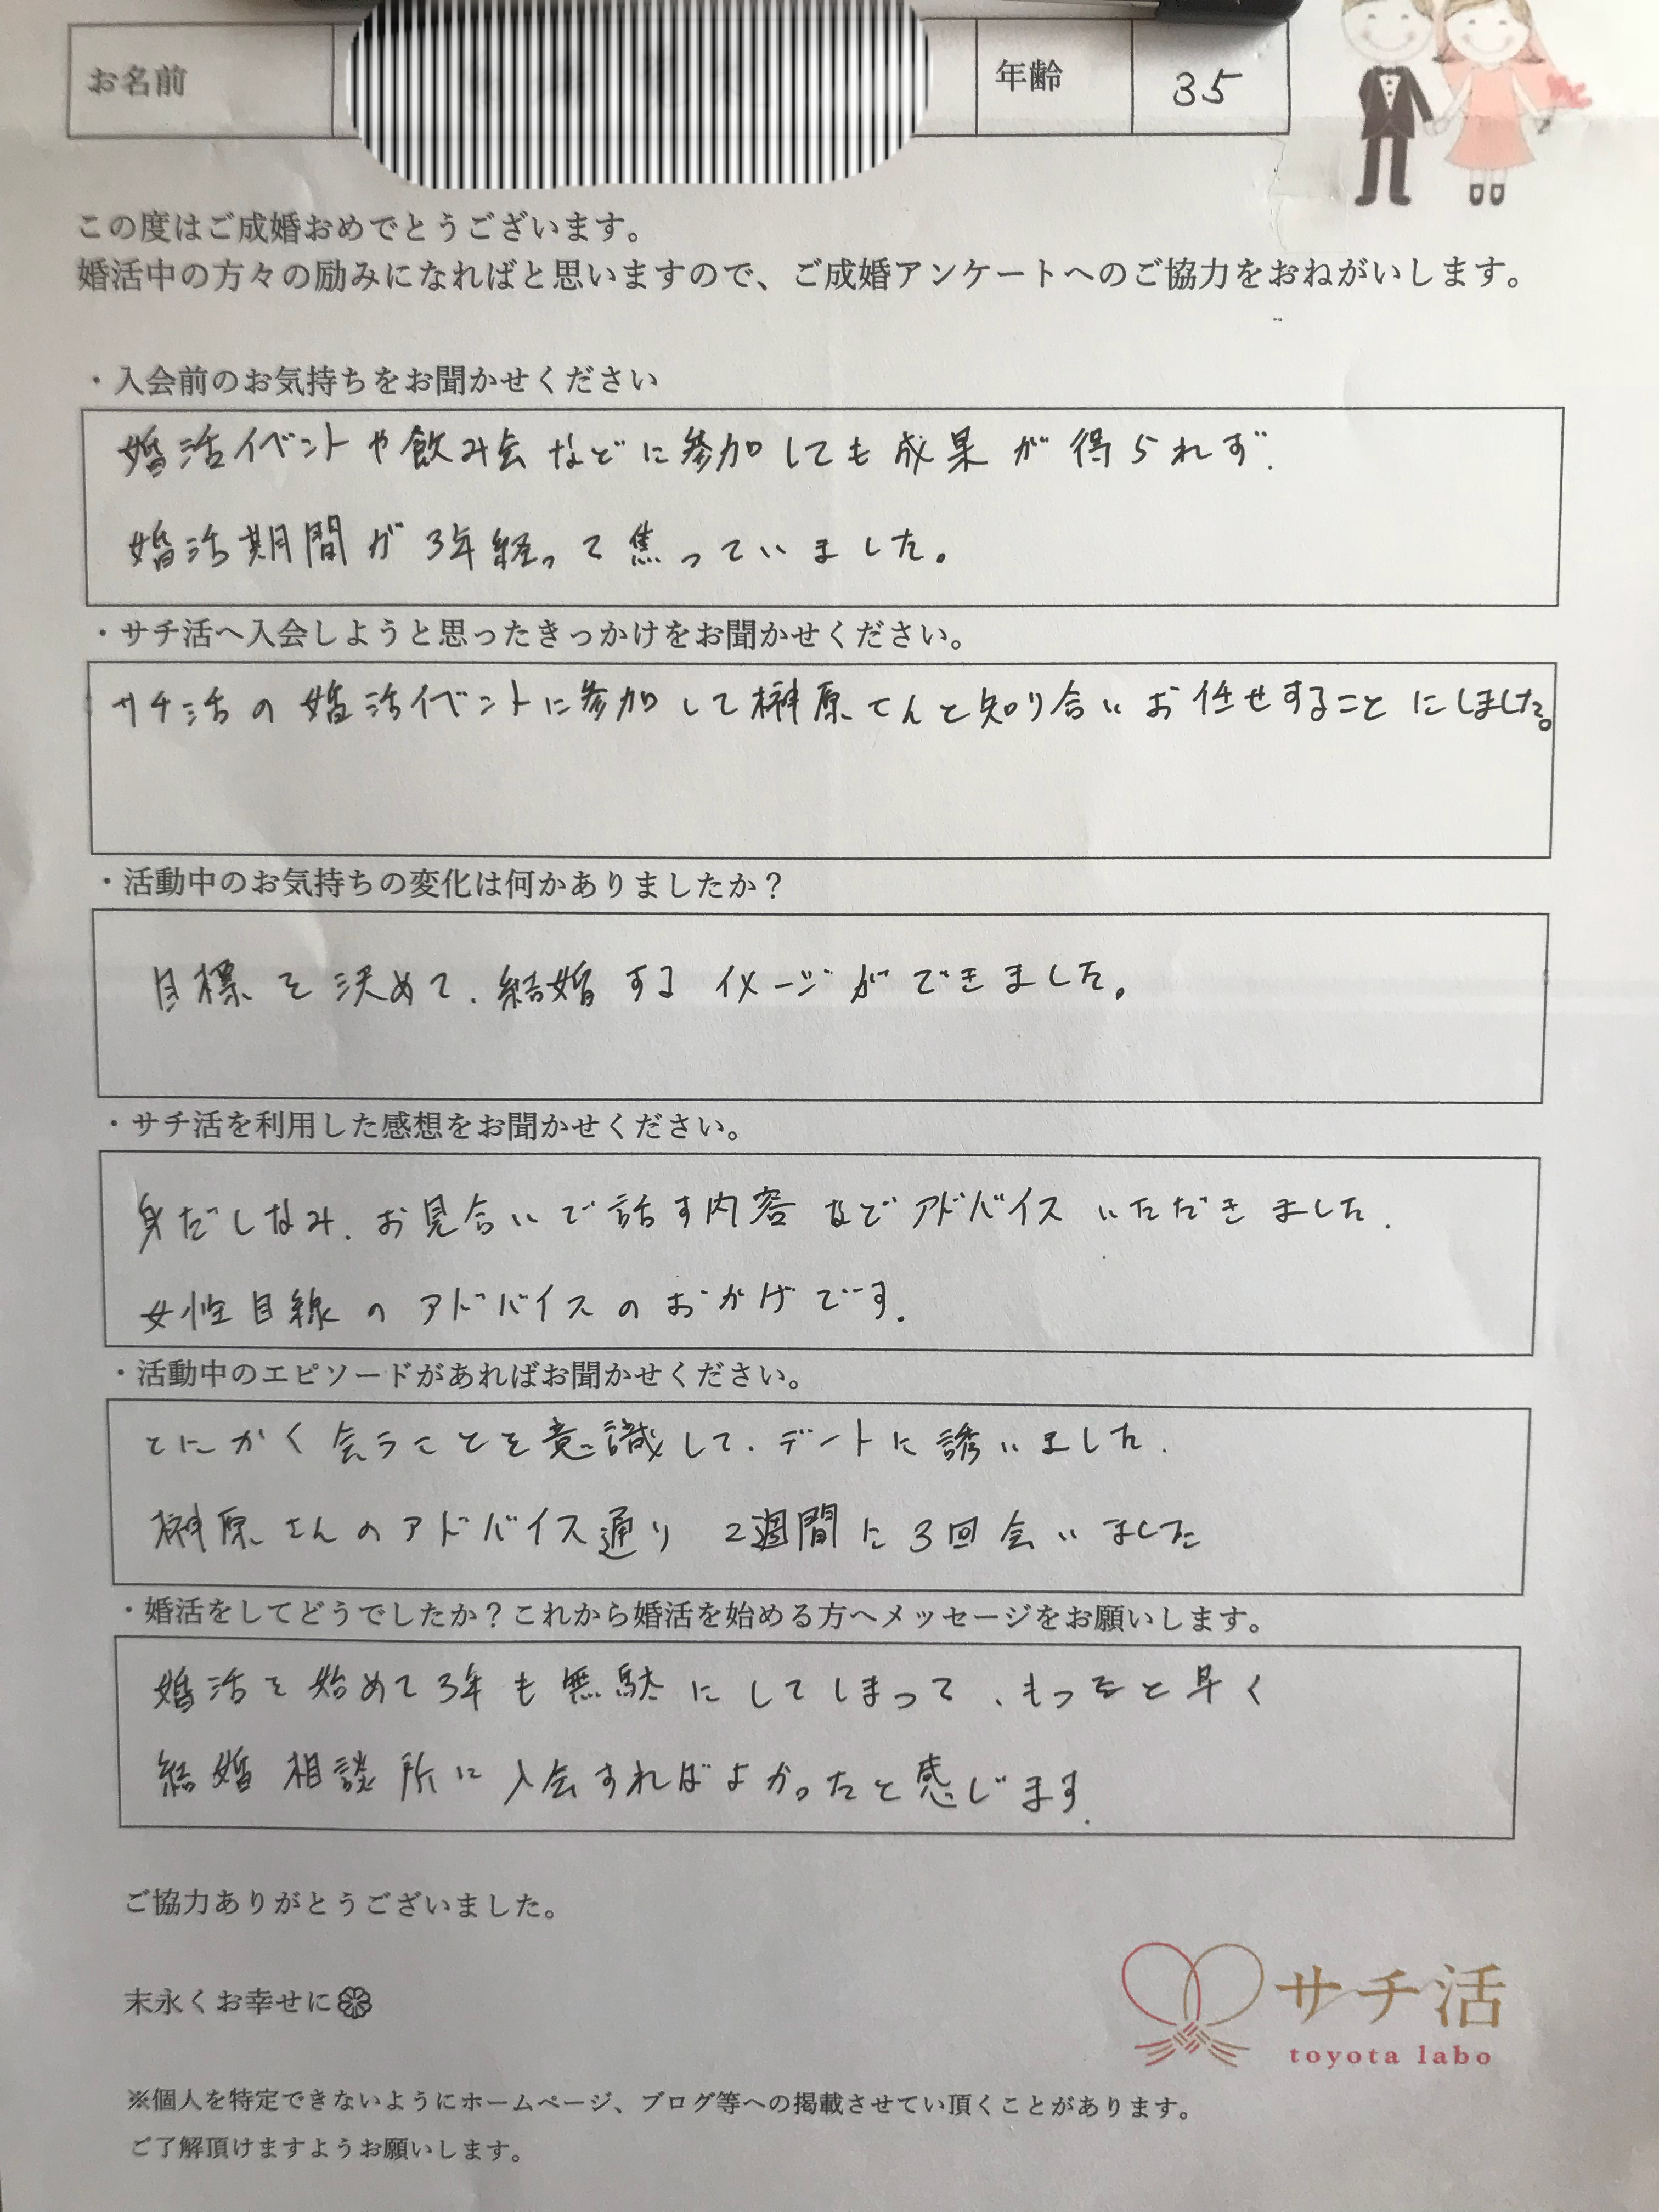 お名前 年齢 35
この度はご成婚おめでとうございます。
婚活中の方々の励みになればと思いますので、ご成婚アンケートへのご協力をおねがいします。
・入会前のお気持ちをお聞かせください
婚活イベントや飲み会などに参加しても成果が得られず、
婚活期間が3年経って焦っていました。
・サチ活へ入会しようと思ったきっかけをお聞かせください。
サチ活の婚活イベントに参加して榊原さんと知り合いお任せすることにしました。
・活動中のお気持ちの変化は何かありましたか？
目標を決めて、結婚するイメージができました。
・サチ活を利用した感想をお聞かせください。
身だしなみ、お見合いで話す内容などアドバイスいただきました。
女性目線のアドバイスのおかげです。
・活動中のエピソードがあればお聞かせください。
とにかく会うことを意識して、デートに誘いました。
榊原さんのアドバイス通り 2週間に3回会いました
・婚活をしてどうでしたか？これから婚活を始める方へメッセージをお願いします。
婚活を始めて3年も無駄にしてしまって、もっと早く
結婚相談所に入会すればよかったと感じます。
ご協力ありがとうございました。
末永くお幸せに
サチ活
toyota labo
※個人を特定できないようにホームページ、ブログ等への掲載させてい頂くことがあります。
ご了解頂けますようお願いします。